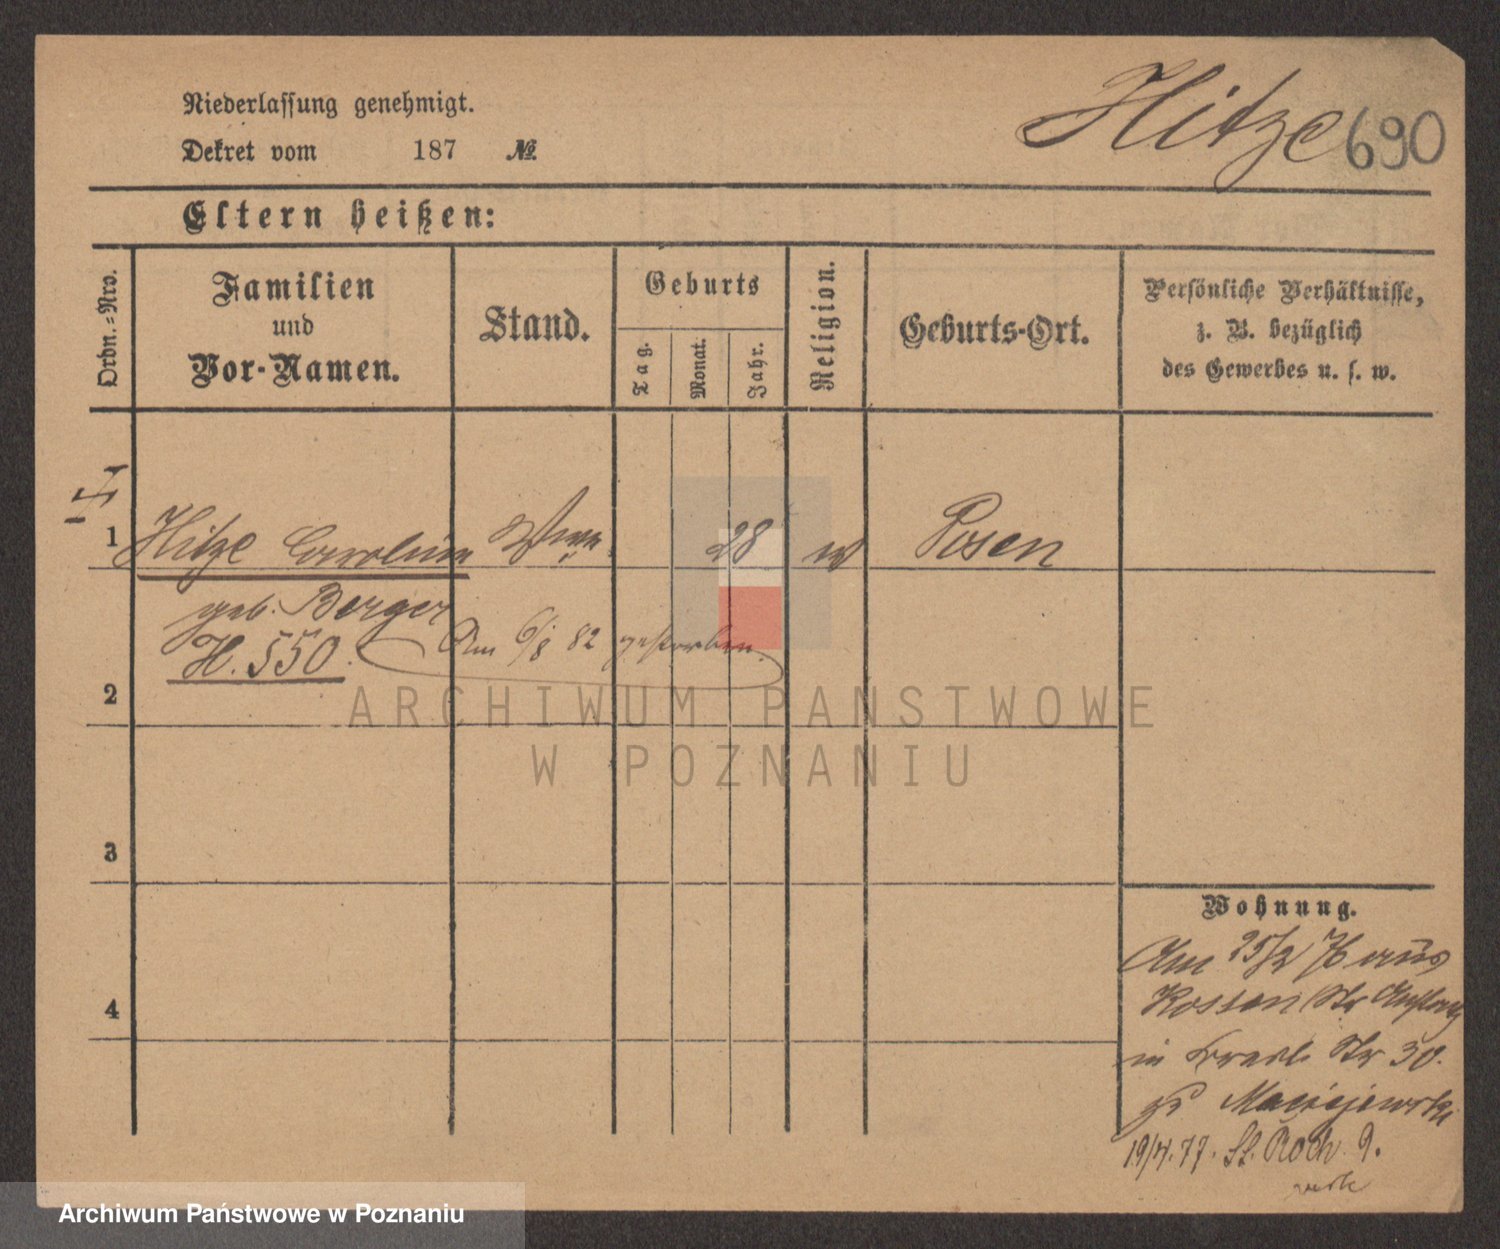 Niederlassung genehmigt.
Hitze 690
Dekret vom 187 №
Eltern heißen:
Ordn.-Nro.
Familien
und
Vor-Namen.
Stand.
Geburts
Tag.
Monat.
Jahr.
Religion.
Geburts-Ort.
Persönliche Verhältnisse,
z. B. bezüglich
des Gewerbes u. s. w.
1 Hitze Carolina 28 Posen
geb. Berger
Am 6/8 82 gestorben.
H. 550.
2
3
4
Wohnung.
Am 25/2 76 aus
Str 30.
Maciejewski
19/4. 77. St. Roch 9.
ARCHIWUM PAŃSTWOWE
W POZNANIU
Archiwum Państwowe w Poznaniu